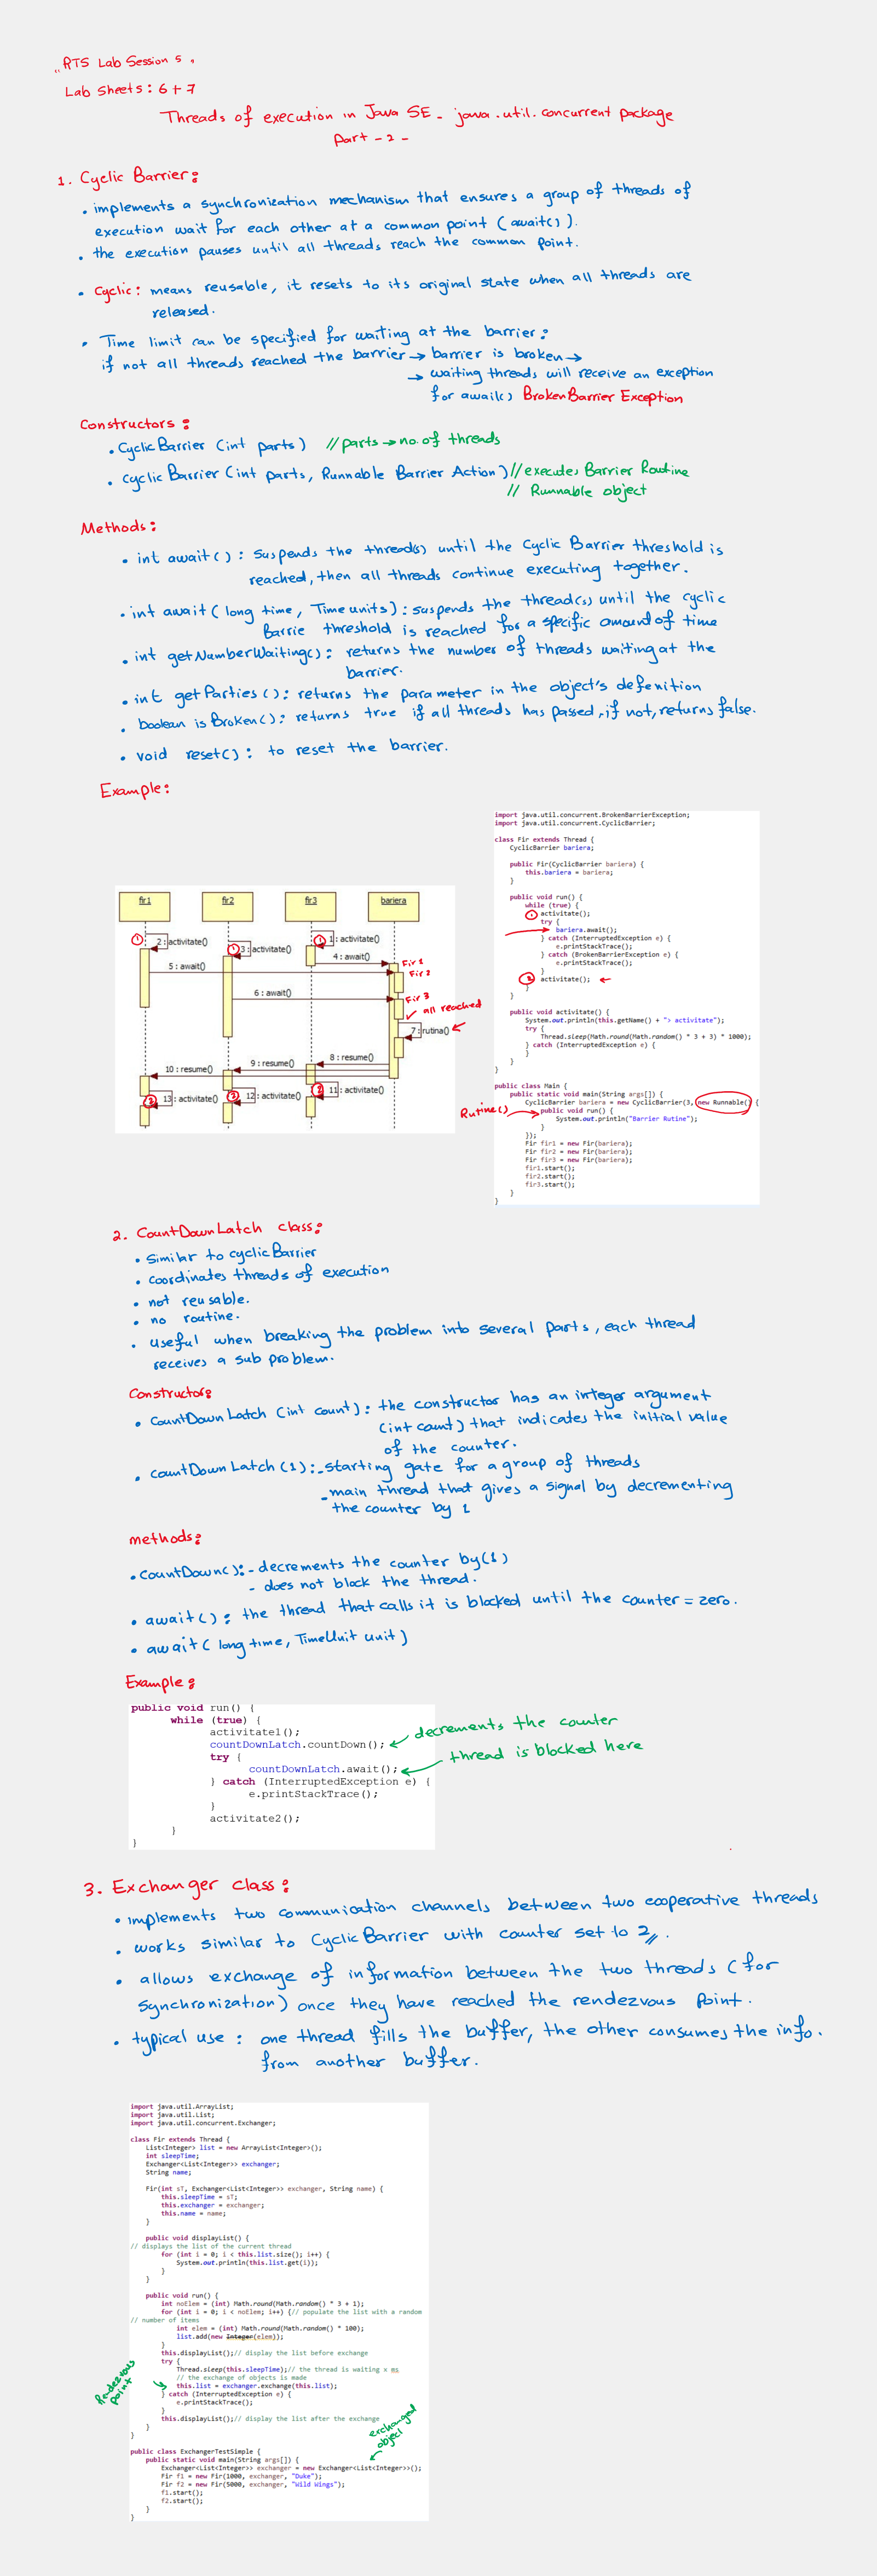 "RTS Lab Session 5"
Lab Sheets: 6+7
Threads of execution in Java SE - java.util.concurrent package
Part - 2 -
1. Cyclic Barrier:
• implements a synchronization mechanism that ensures a group of threads of
execution wait for each other at a common point (await()).
• the execution pauses until all threads reach the common point.
• Cyclic: means reusable, it resets to its original state when all threads are
released.
• Time limit can be specified for waiting at the barrier:
if not all threads reached the barrier → barrier is broken →
→ waiting threads will receive an exception
for await() BrokenBarrier Exception
Constructors:
• CyclicBarrier (int parts) // parts → no. of threads
• cyclic Barrier (int parts, Runnable Barrier Action) // executes Barrier Routine
// Runnable object
Methods:
• int await(): suspends the thread(s) until the Cyclic Barrier threshold is
reached, then all threads continue executing together.
• int await( long time, Time units): suspends the thread(s) until the cyclic
Barrie threshold is reached for a specific amound of time
• int getNumberWaiting(): returns the number of threads waiting at the
barrier.
• int getParties(): returns the parameter in the object's defenition
• boolean isBroken(): returns true if all threads has passed, if not, returns false.
• void reset(): to reset the barrier.
Example:
fir1 fir2 fir3 bariera
1 2 : activitate()
1 3 : activitate()
1 1 : activitate()
4 : await()
Fir 1
5 : await()
Fir 2
6 : await()
Fir 3
all reached
7 : rutina()
8 : resume()
9 : resume()
10 : resume()
2 11 : activitate()
2 12 : activitate()
2 13 : activitate()
import java.util.concurrent.BrokenBarrierException;
import java.util.concurrent.CyclicBarrier;
class Fir extends Thread {
CyclicBarrier bariera;
public Fir(CyclicBarrier bariera) {
this.bariera = bariera;
}
public void run() {
while (true) {
1 activitate();
try {
bariera.await();
} catch (InterruptedException e) {
e.printStackTrace();
} catch (BrokenBarrierException e) {
e.printStackTrace();
}
2 activitate(); ←
}
}
public void activitate() {
System.out.println(this.getName() + "> activitate");
try {
Thread.sleep(Math.round(Math.random() * 3 + 3) * 1000);
} catch (InterruptedException e) {
}
}
}
public class Main {
public static void main(String args[]) {
CyclicBarrier bariera = new CyclicBarrier(3, new Runnable() {
Rutine() → public void run() {
System.out.println("Barrier Rutine");
}
});
Fir fir1 = new Fir(bariera);
Fir fir2 = new Fir(bariera);
Fir fir3 = new Fir(bariera);
fir1.start();
fir2.start();
fir3.start();
}
}
2. CountDownLatch class:
• Similar to cyclicBarrier
• coordinates threads of execution
• not reusable.
• no routine.
• useful when breaking the problem into several parts, each thread
receives a sub problem.
Constructor:
• CountDownLatch (int count): the constructor has an integer argument
(int count) that indicates the initial value
of the counter.
• countDownLatch (1): - starting gate for a group of threads
- main thread that gives a signal by decrementing
the counter by 1
methods:
• countDown(): - decrements the counter by (1)
- does not block the thread.
• await(): the thread that calls it is blocked until the counter = zero.
• await( long time, TimeUnit unit)
Example:
public void run() {
while (true) {
activitate1();
countDownLatch.countDown(); ← decrements the counter
try {
countDownLatch.await(); ← thread is blocked here
} catch (InterruptedException e) {
e.printStackTrace();
}
activitate2();
}
}
3. Exchanger class:
• implements two communication channels between two cooperative threads
• works similar to CyclicBarrier with counter set to 2//.
• allows exchange of information between the two threads (for
synchronization) once they have reached the rendezvous point.
• typical use: one thread fills the buffer, the other consumes the info.
from another buffer.
import java.util.ArrayList;
import java.util.List;
import java.util.concurrent.Exchanger;
class Fir extends Thread {
List<Integer> list = new ArrayList<Integer>();
int sleepTime;
Exchanger<List<Integer>> exchanger;
String name;
Fir(int sT, Exchanger<List<Integer>> exchanger, String name) {
this.sleepTime = sT;
this.exchanger = exchanger;
this.name = name;
}
public void displayList() {
// displays the list of the current thread
for (int i = 0; i < this.list.size(); i++) {
System.out.println(this.list.get(i));
}
}
public void run() {
int noElem = (int) Math.round(Math.random() * 3 + 1);
for (int i = 0; i < noElem; i++) {// populate the list with a random
// number of items
int elem = (int) Math.round(Math.random() * 100);
list.add(new Integer(elem));
}
this.displayList();// display the list before exchange
try {
Thread.sleep(this.sleepTime);// the thread is waiting x ms
// the exchange of objects is made
Rendezvous point
this.list = exchanger.exchange(this.list);
} catch (InterruptedException e) {
e.printStackTrace();
}
this.displayList();// display the list after the exchange
}
}
exchanged object
public class ExchangerTestSimple {
public static void main(String args[]) {
Exchanger<List<Integer>> exchanger = new Exchanger<List<Integer>>();
Fir f1 = new Fir(1000, exchanger, "Duke");
Fir f2 = new Fir(5000, exchanger, "Wild Wings");
f1.start();
f2.start();
}
}